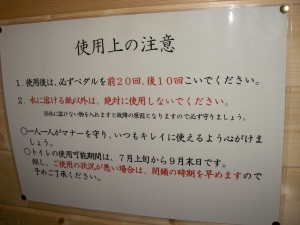 使用上の注意
1．使用後は、必ずペダルを前20回、後10回こいでください。
2．水に溶ける紙以外は、絶対に使用しないでください。
※水に溶けない物を入れますと故障の原因となりますので必ず守りましょう。
○一人一人がマナーを守り、いつもキレイに使えるよう心がけま
しょう。
○トイレの使用可能期間は、7月上旬から9月末日です。
但し、ご使用の状況が悪い場合は、閉鎖の時期を早めますので
予めご了承ください。